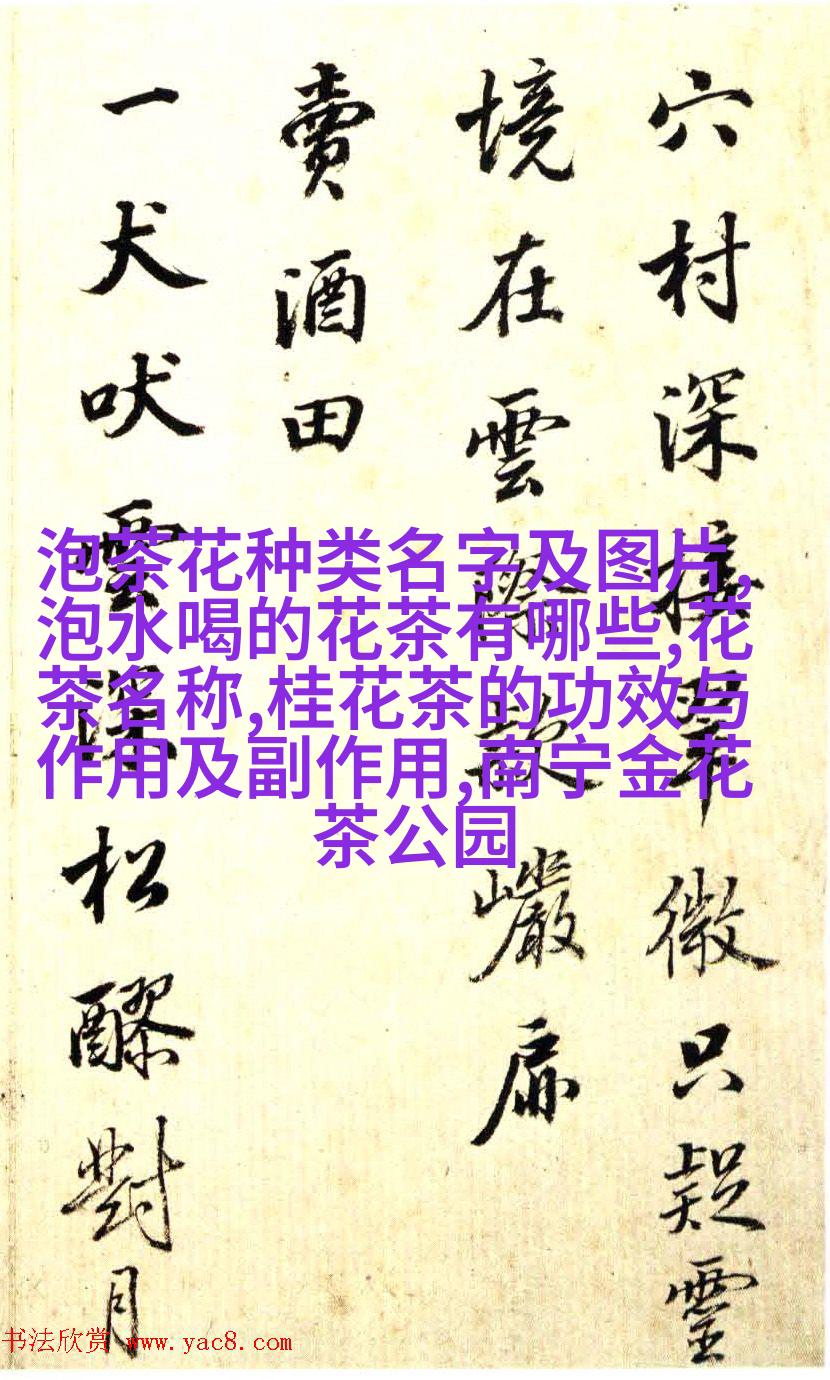 穴村深接翠微只疑靈
境在雲際款巖扉
賣酒田
一犬吠雲深松醪對月
泡茶花种类名字及图片,
泡水喝的花茶有哪些,花
茶名称,桂花茶的功效与
作用及副作用,南宁金花
茶公园
书法欣赏 www.yac8.com